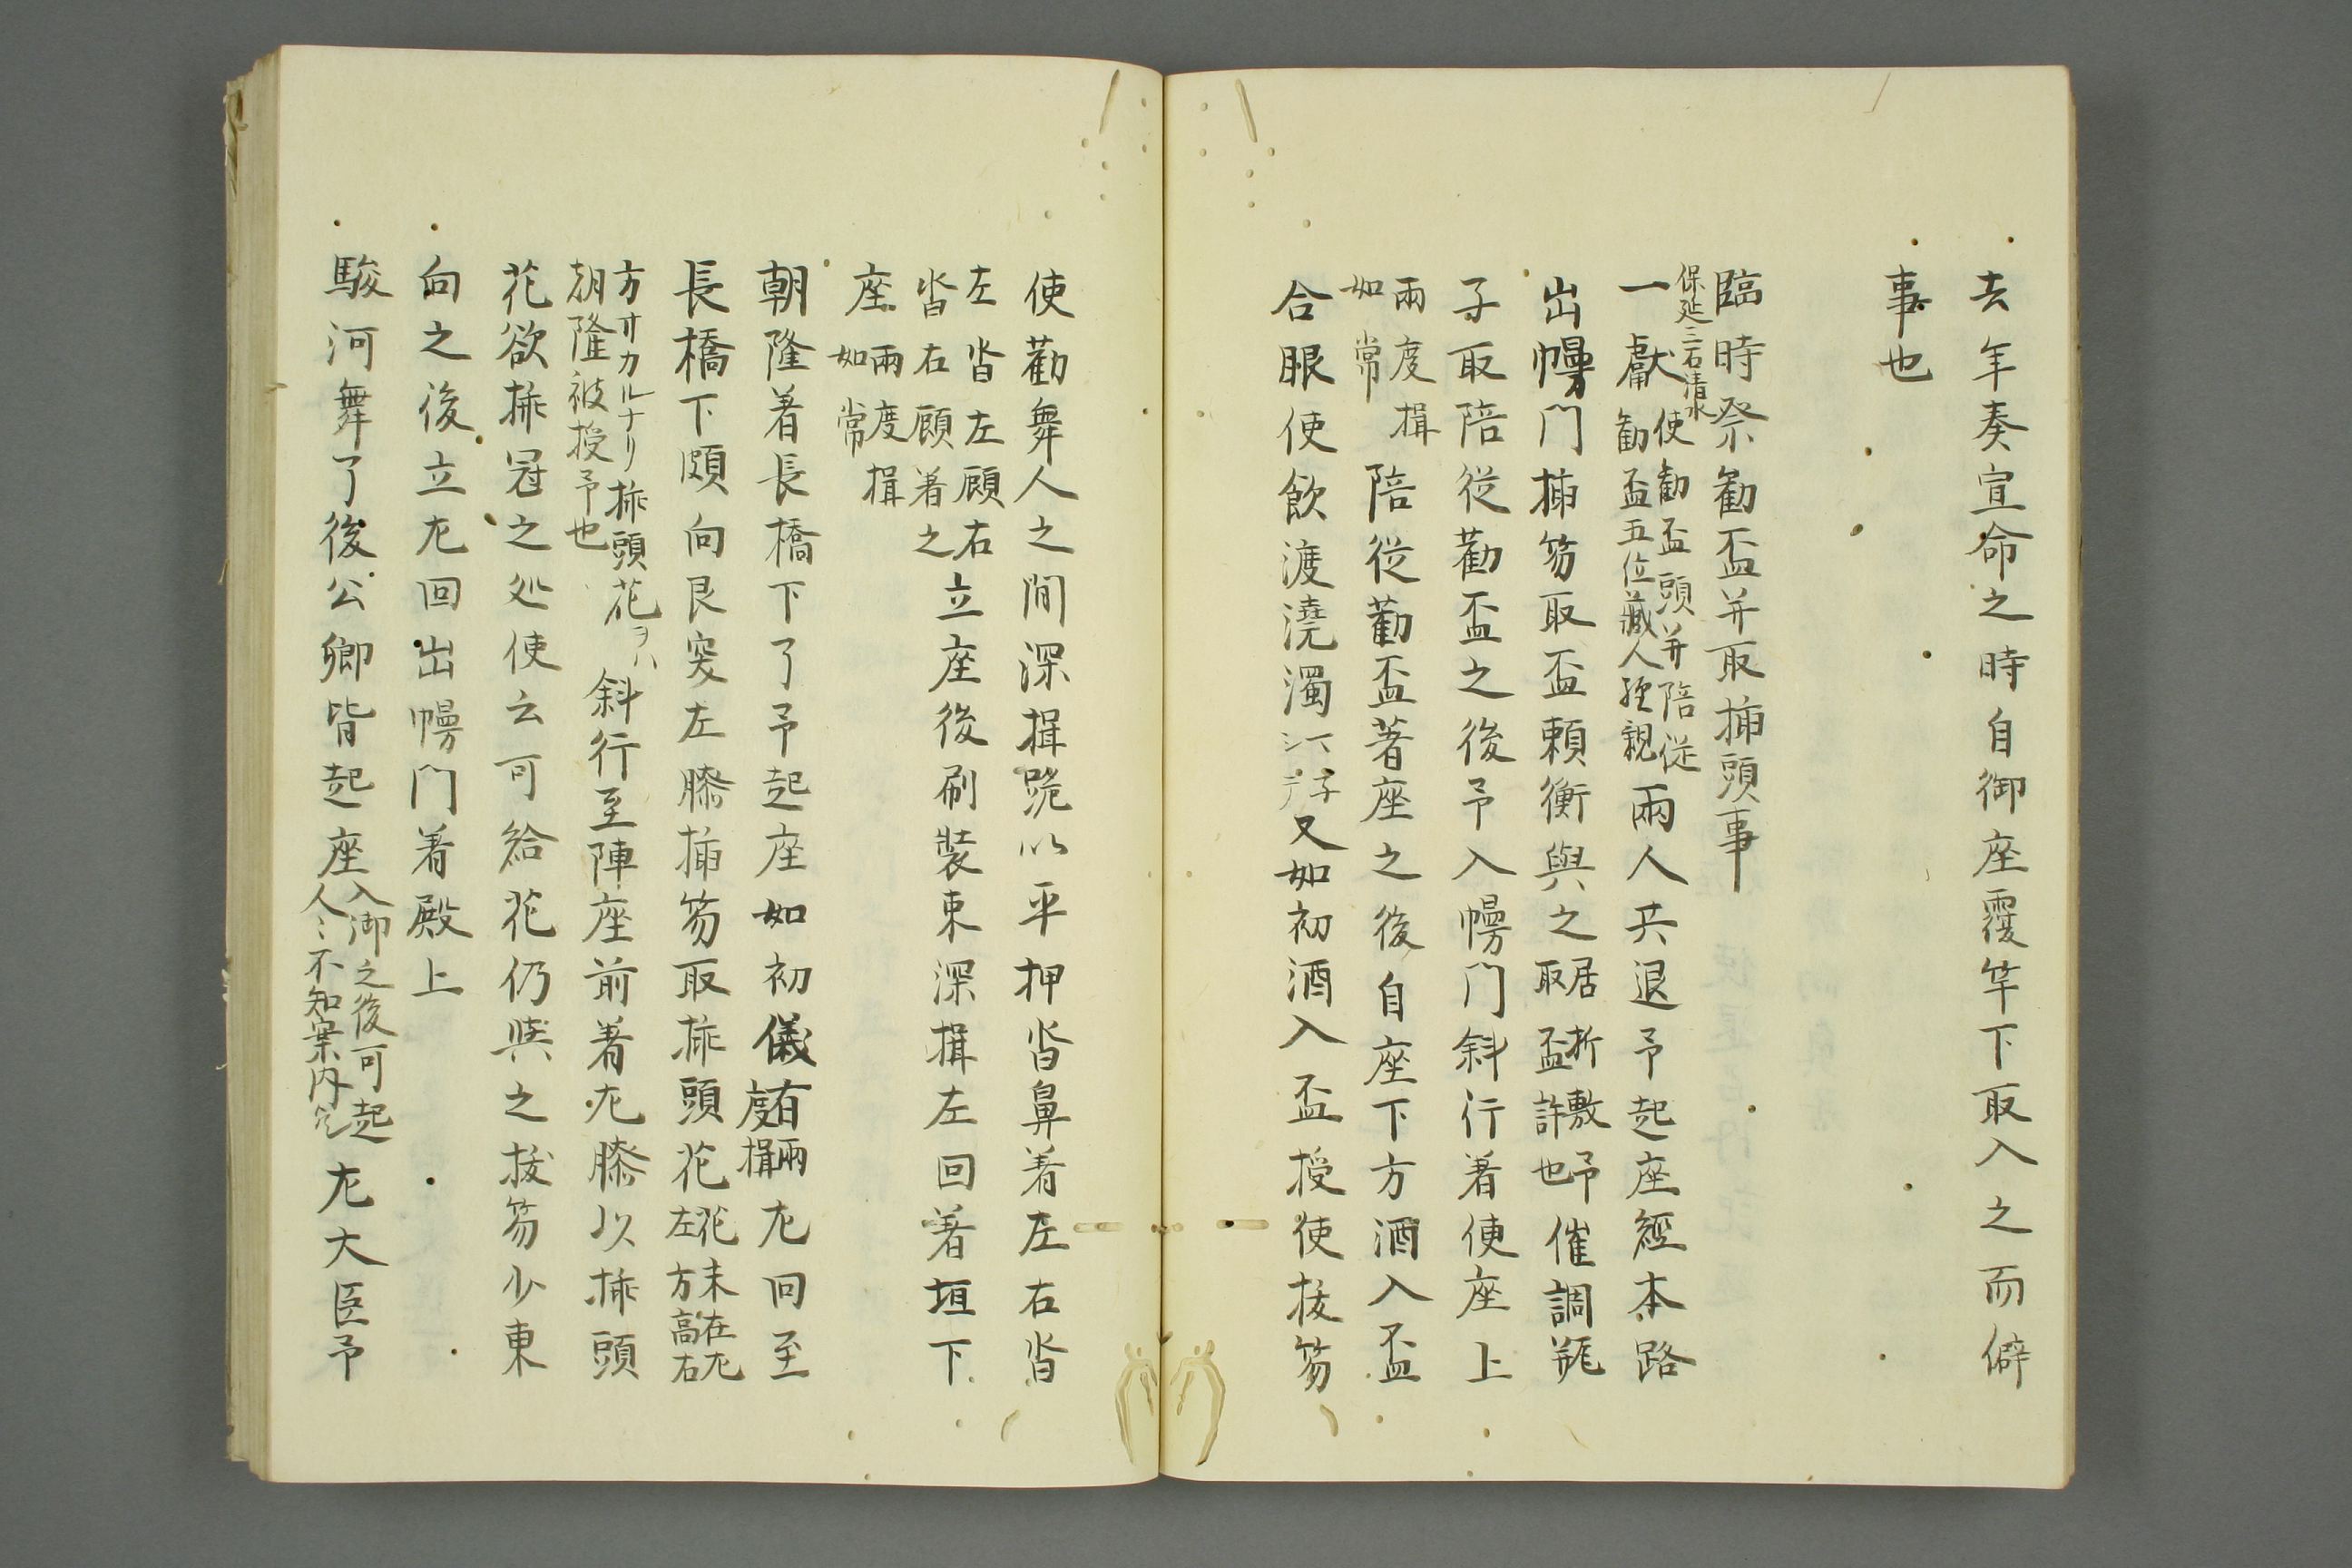 去年奏宣命之時自御座覆竿下取入之而僻
事也
臨時祭勧盃并取挿頭事
保延三石清水
一献使勧盃頭并陪従勧盃五位蔵人 親両人共退予起座経本路
出幔門挿笏取盃頼衡與之居折敷予取盃許也催調瓶
子取陪従勧盃之後予入幔門斜行着使座上
両度揖如常陪従勧盃著座之後自座下方酒入盃
合眼使飲渡澆濁 又如初酒入盃授使抜笏
使勧舞人之間深揖跪以平押沓鼻着左右沓
左沓左顧右沓右顧着之立座後刷装束深揖左回着垣下
座両度揖如常
朝隆着長橋下了予起座如初儀有両度揖尢回至
長橋下頗向艮突左膝挿笏取挿頭花花末在尢左方高右
方オカルナリ挿頭花ヲハ朝隆被授予也斜行至陣座前着尢膝以挿頭
花欲挿冠之処使云可給花仍與之抜笏少東
向之後立尢回出幔門着殿上
駿河舞了後公卿皆起座入御之後可起人〻不知案内 尢大臣予